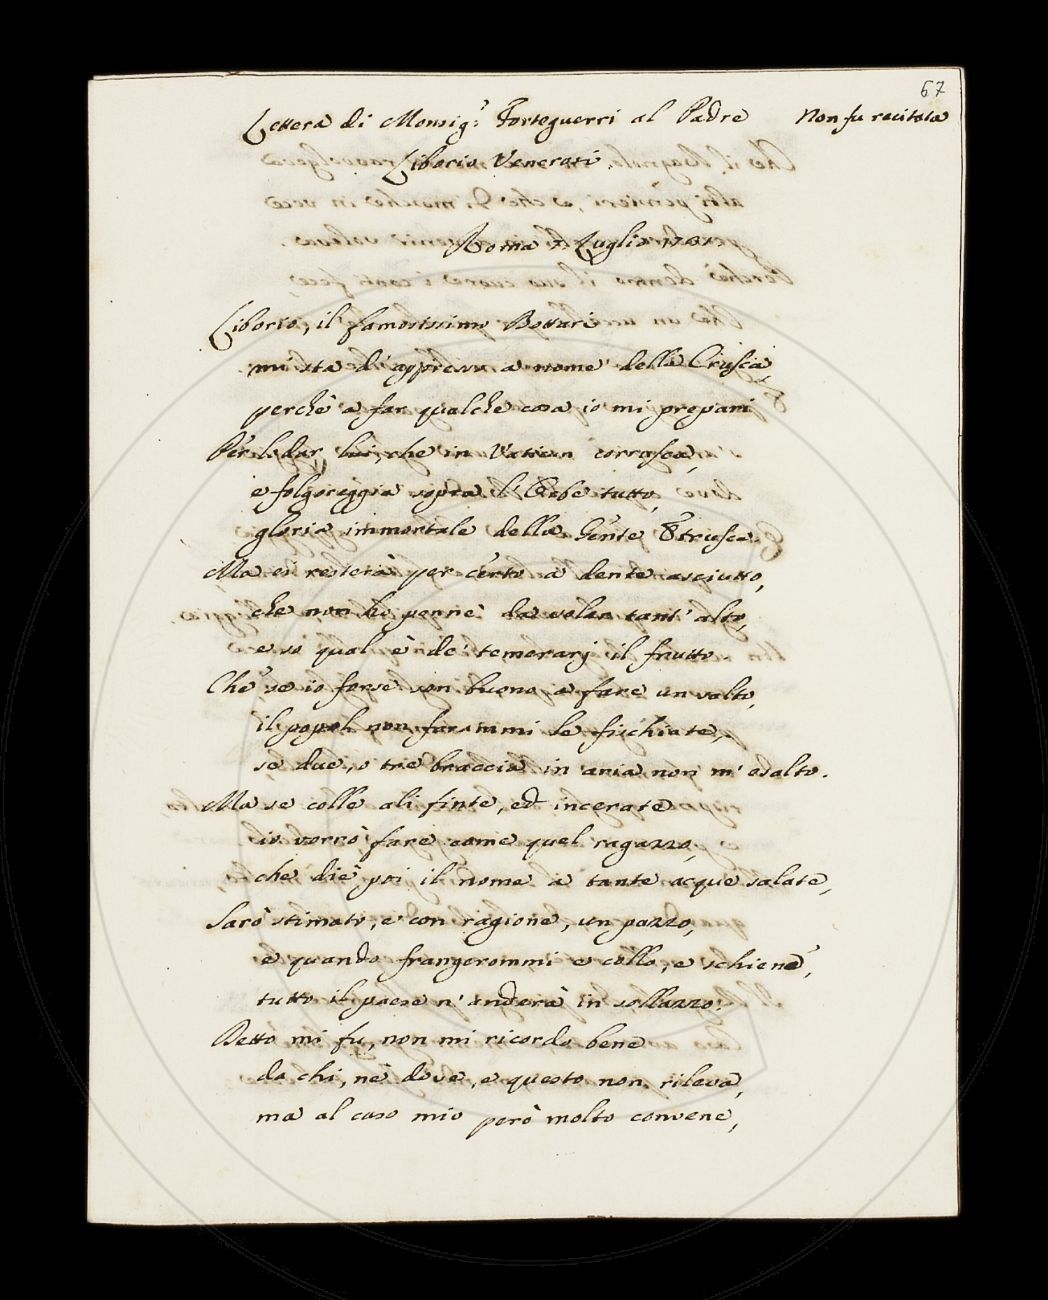 67
Lettera di Monsig.r Forteguerri al Padre
Non fu recitata
Liborio Venerosi.
Roma 7. Luglio
Liborio, il famosissimo Bottari
mi sta d'appresso a nome della Crusca
perchè a far qualche cosa io mi prepari
Per lodar lui, che in Vatican corrusca,
e folgoreggia sopra l'Orbe tutto,
gloria immortale della Gente Etrusca.
Ma ei resterà per certo a dente asciutto,
che non ho penne da volar tant'alto,
e so qual è de' temerarj il frutto
Chè se io forse son buono a fare un salto,
il popol non farammi le fischiate,
se due, o tre braccia in aria non m'esalto.
Ma se colle ali finte, ed incerate
io vorrò fare come quel ragazzo,
che diè poi il nome a tante acque salate,
Sarò stimato, e con ragione, un pazzo,
e quando frangerommi e collo, e schiene,
tutto il paese n'anderà in sollazzo.
Detto mi fu, non mi ricordo bene
da chi, nè dove, e questo non rileva,
ma al caso mio però molto convene,